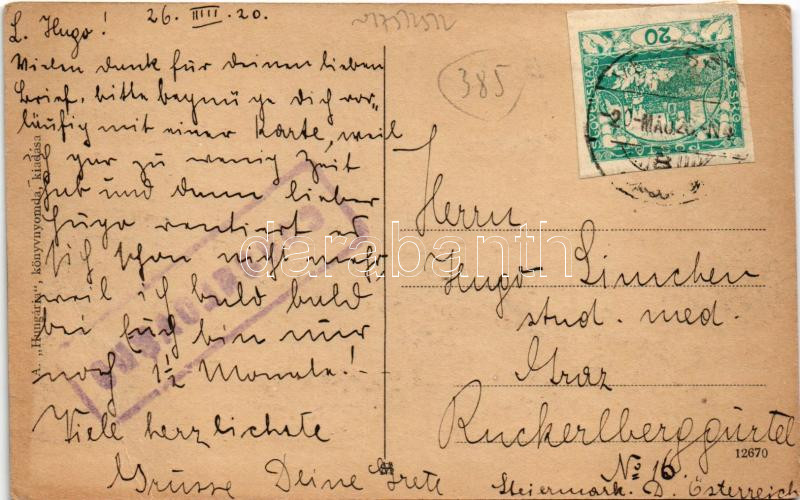 L. Hugo! 26. IIII. 20.
Vielen dank für deinen lieben
Brief, bitte begnüge dich vor„
läufig mit einer Karte, weil
ich gar zu wenig Zeit
hab und dann lieber
Hugo rentiert es
sich schon nicht mehr
weil ich bald bald
bei Euch bin nur
noch 1 1/2 Monate!-
Viele herzlichste
Grüsse Deine Grete
385
20
Herrn
Hugo Simchen
stud. med.
Graz
Ruckerlberggürtel
No 16
Steiermark. D. Österreich
12670
A. „Hungária", könyvnyomda, kiadása
darabanth